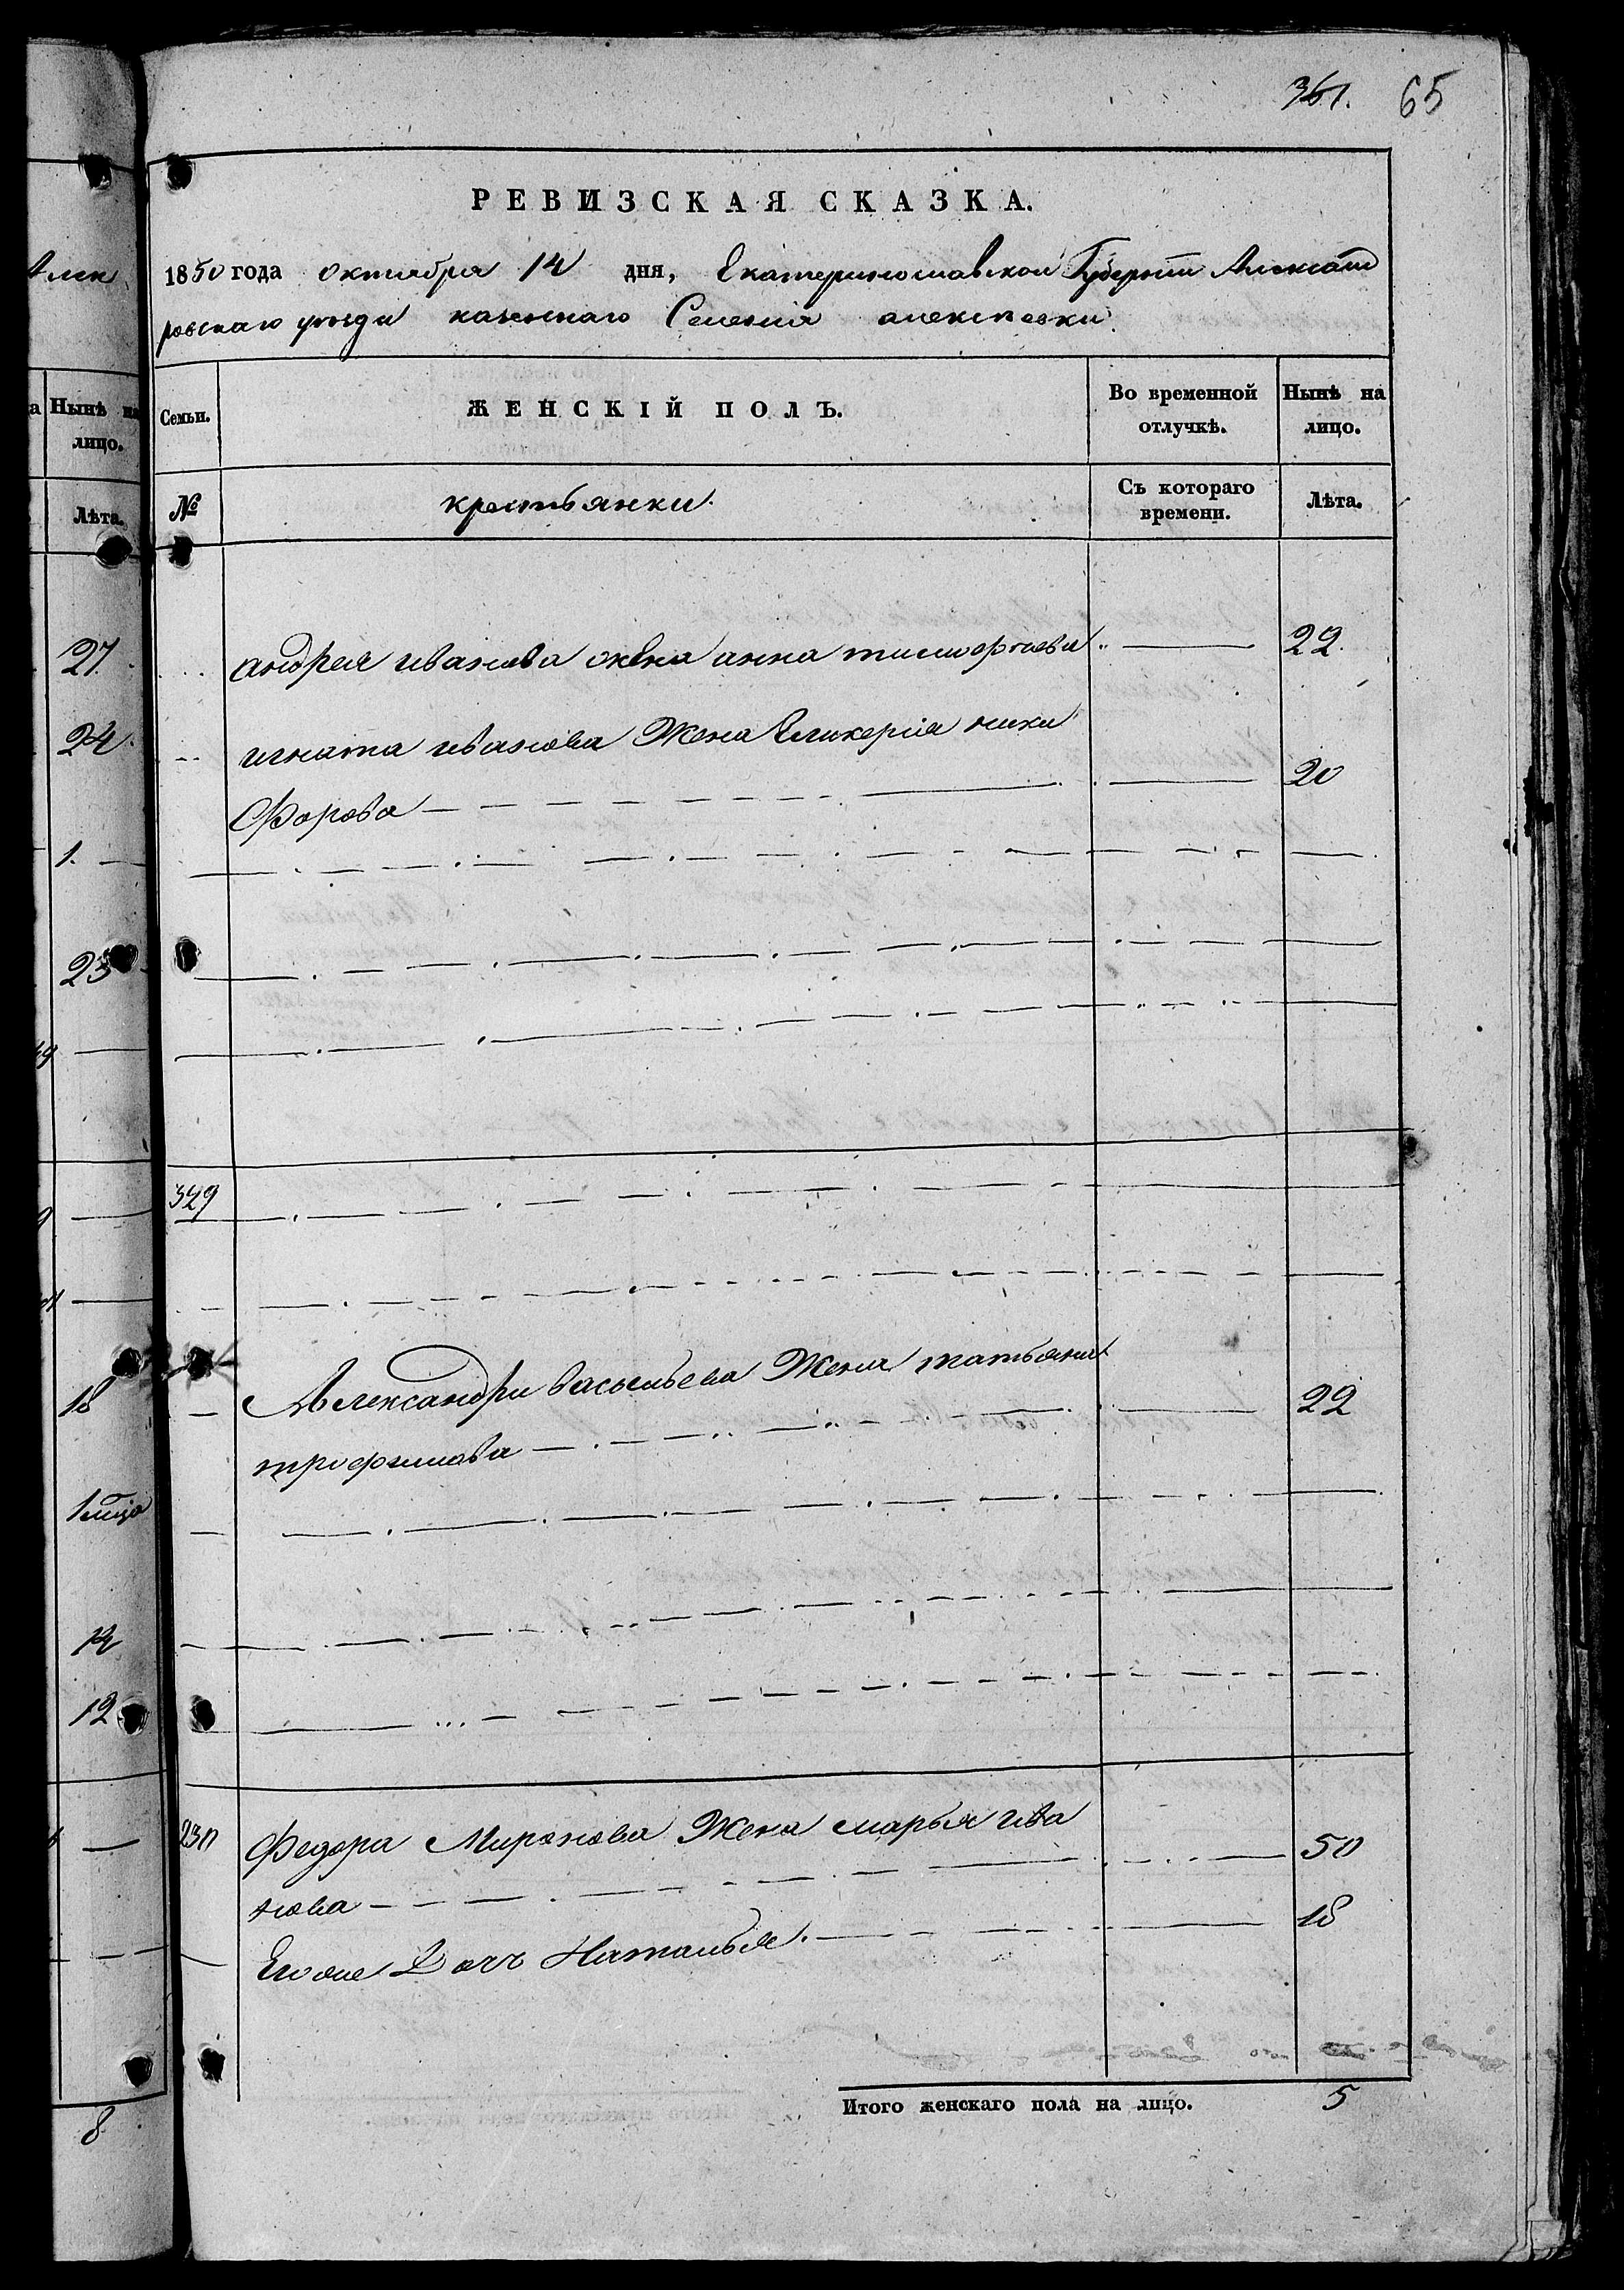 361. 65
РЕВИЗСКАЯ СКАЗКА.
1850 года октября 14 дня, Екатеринославской Губерніи Александ
ровскаго уезда казеннаго Селенія алексеевки.
Семьи. ЖЕНСКІЙ ПОЛЪ. Во временной отлучкѣ. Нынѣ на лицо.
№ крестьянки. Съ котораго времени. Лѣта.
андрея иванова жена анна тимофеева 22.
игната иванова Жена Гликерія ники
форова 20
329
Александра васильева Жена татьяна
трофимова 22
230 Федора Миронова Жена марья ива
нова 50
Его же Доч Наталья. 18
Итого женскаго пола на лицо. 5
Алек
Нынѣ на
лицо.
Лѣта.
27.
24.
1.
23
18
14
12
8